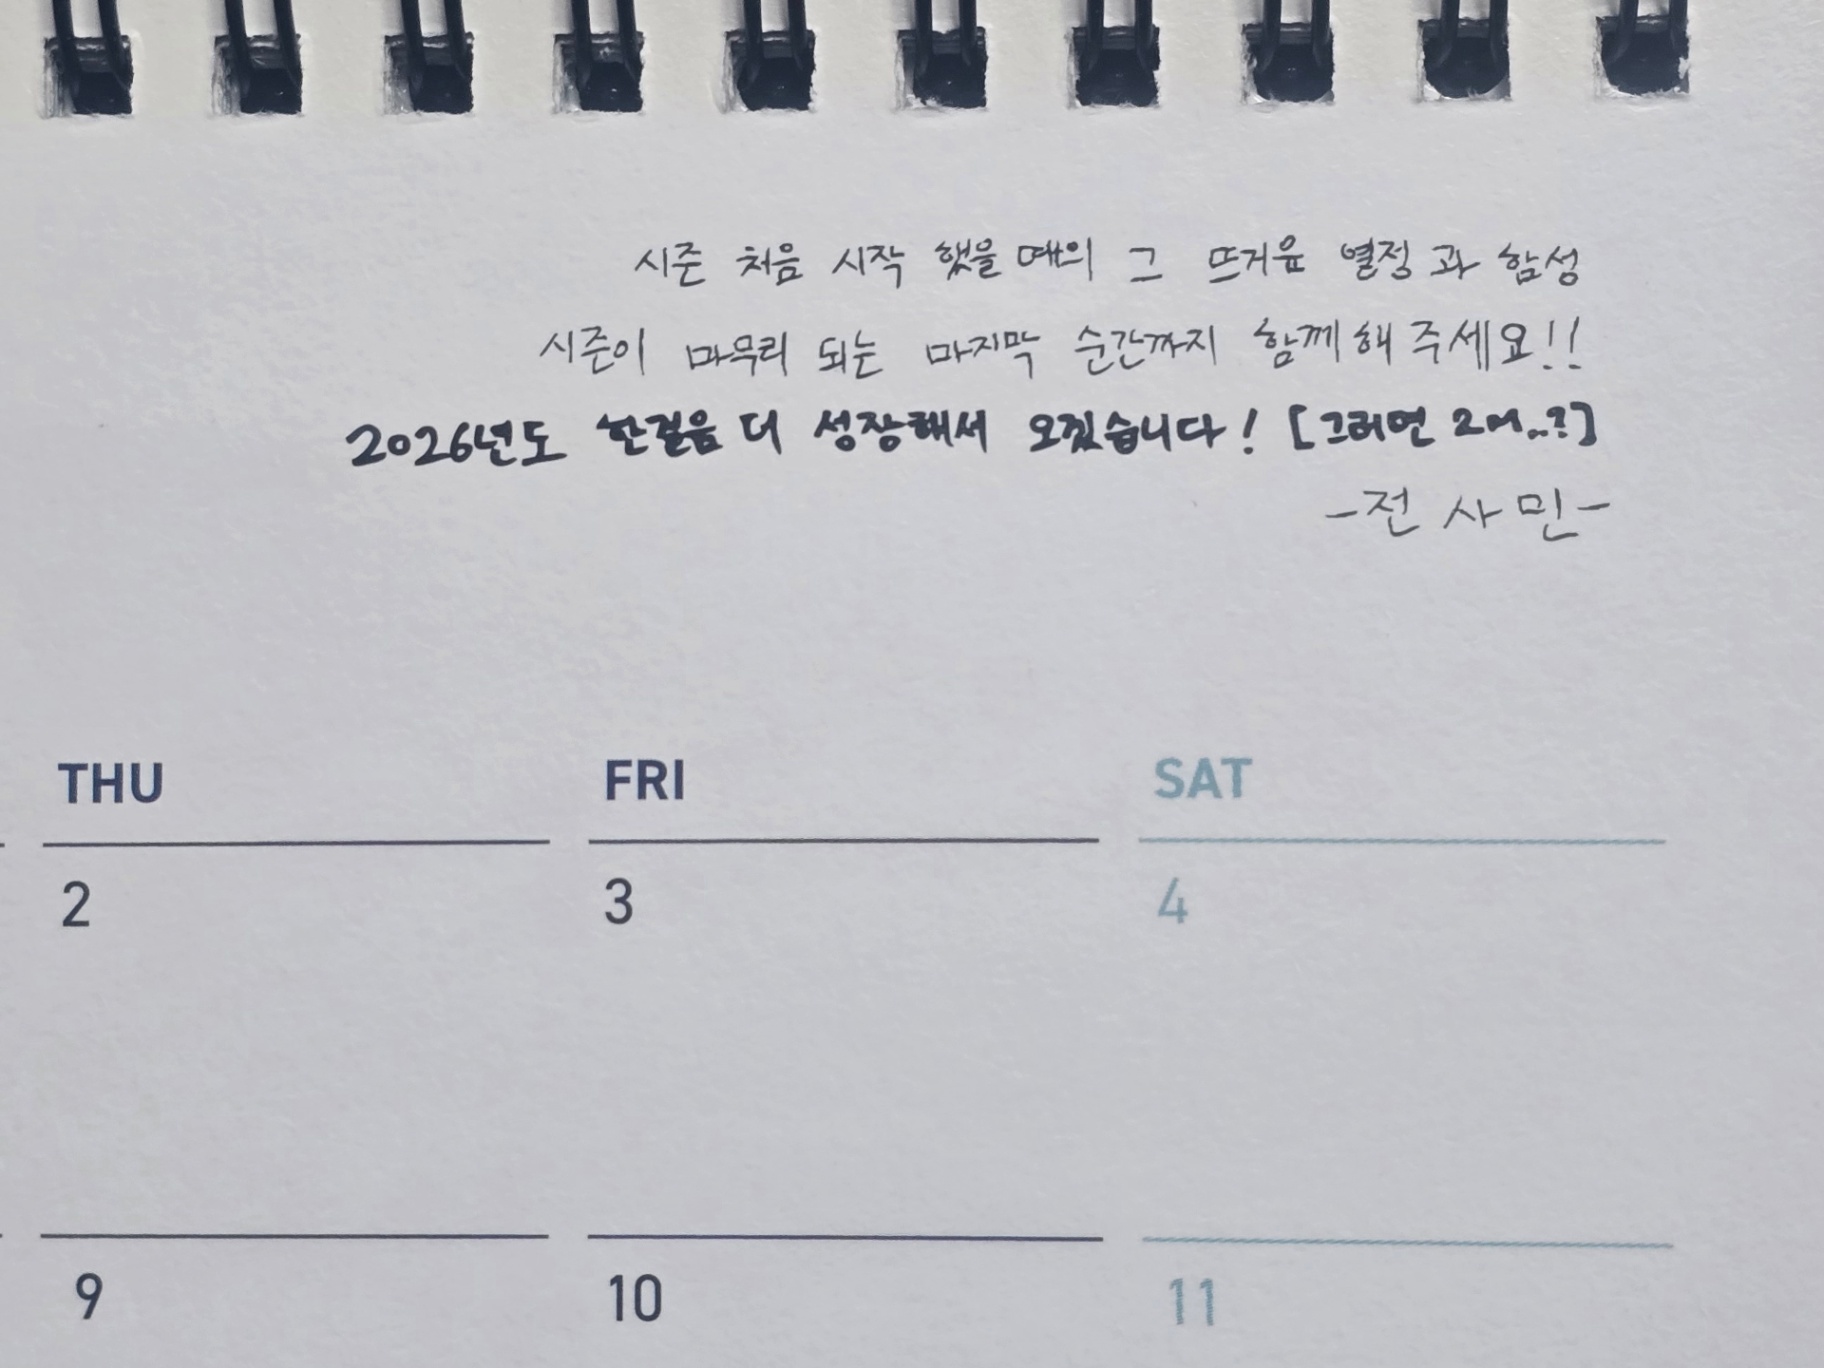 시즌 처음 시작 했을 때의 그 뜨거운 열정과 함성
시즌이 마무리 되는 마지막 순간까지 함께해 주세요!!
2026년도 한걸음 더 성장해서 오겠습니다! [그러면 2어..?]
-전 사 민-
THU FRI SAT
2 3 4
9 10 11